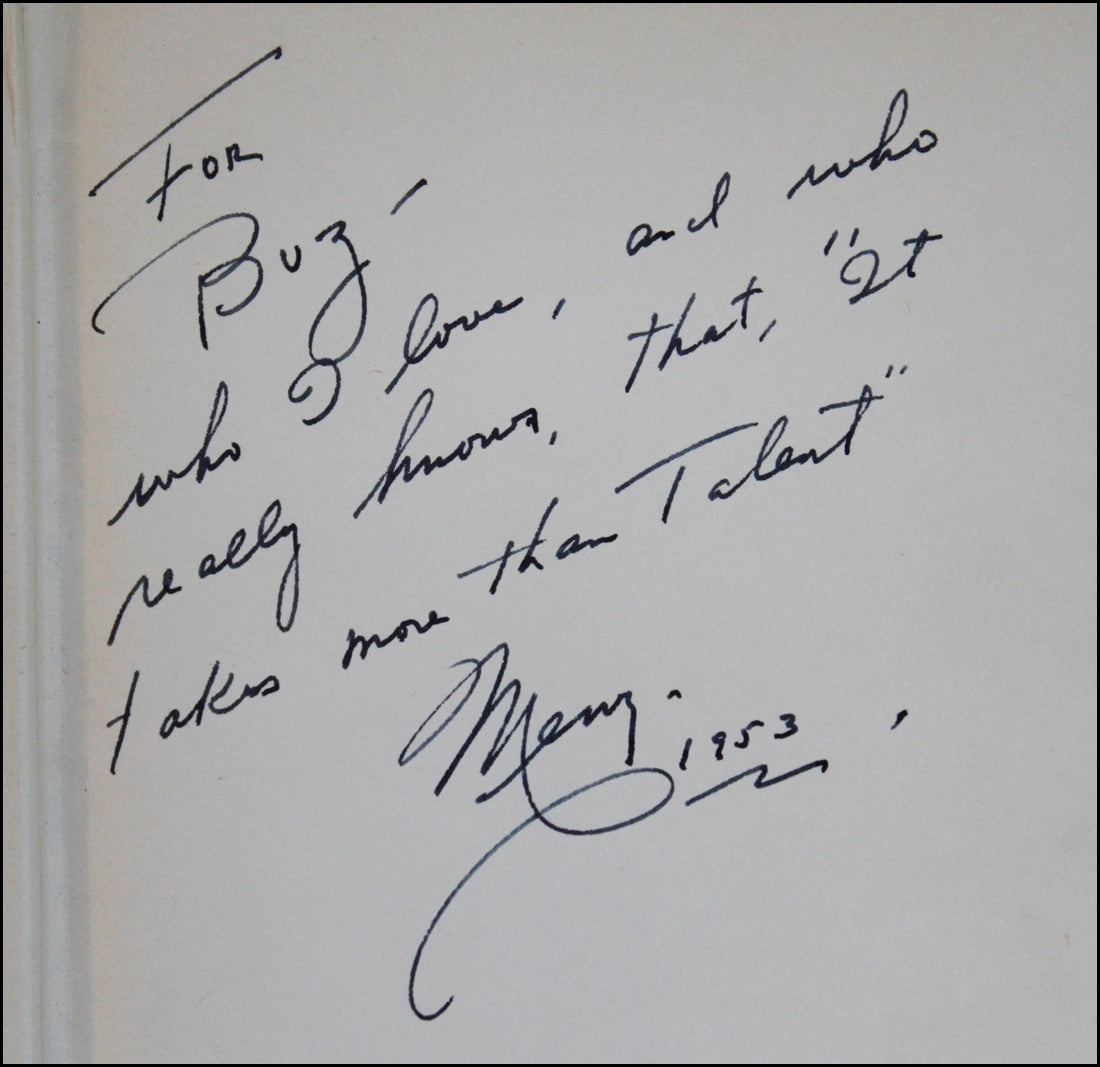 For
Buz -
who I love, and who
really knows, that, "It
takes more than Talent"
Merv.
1953